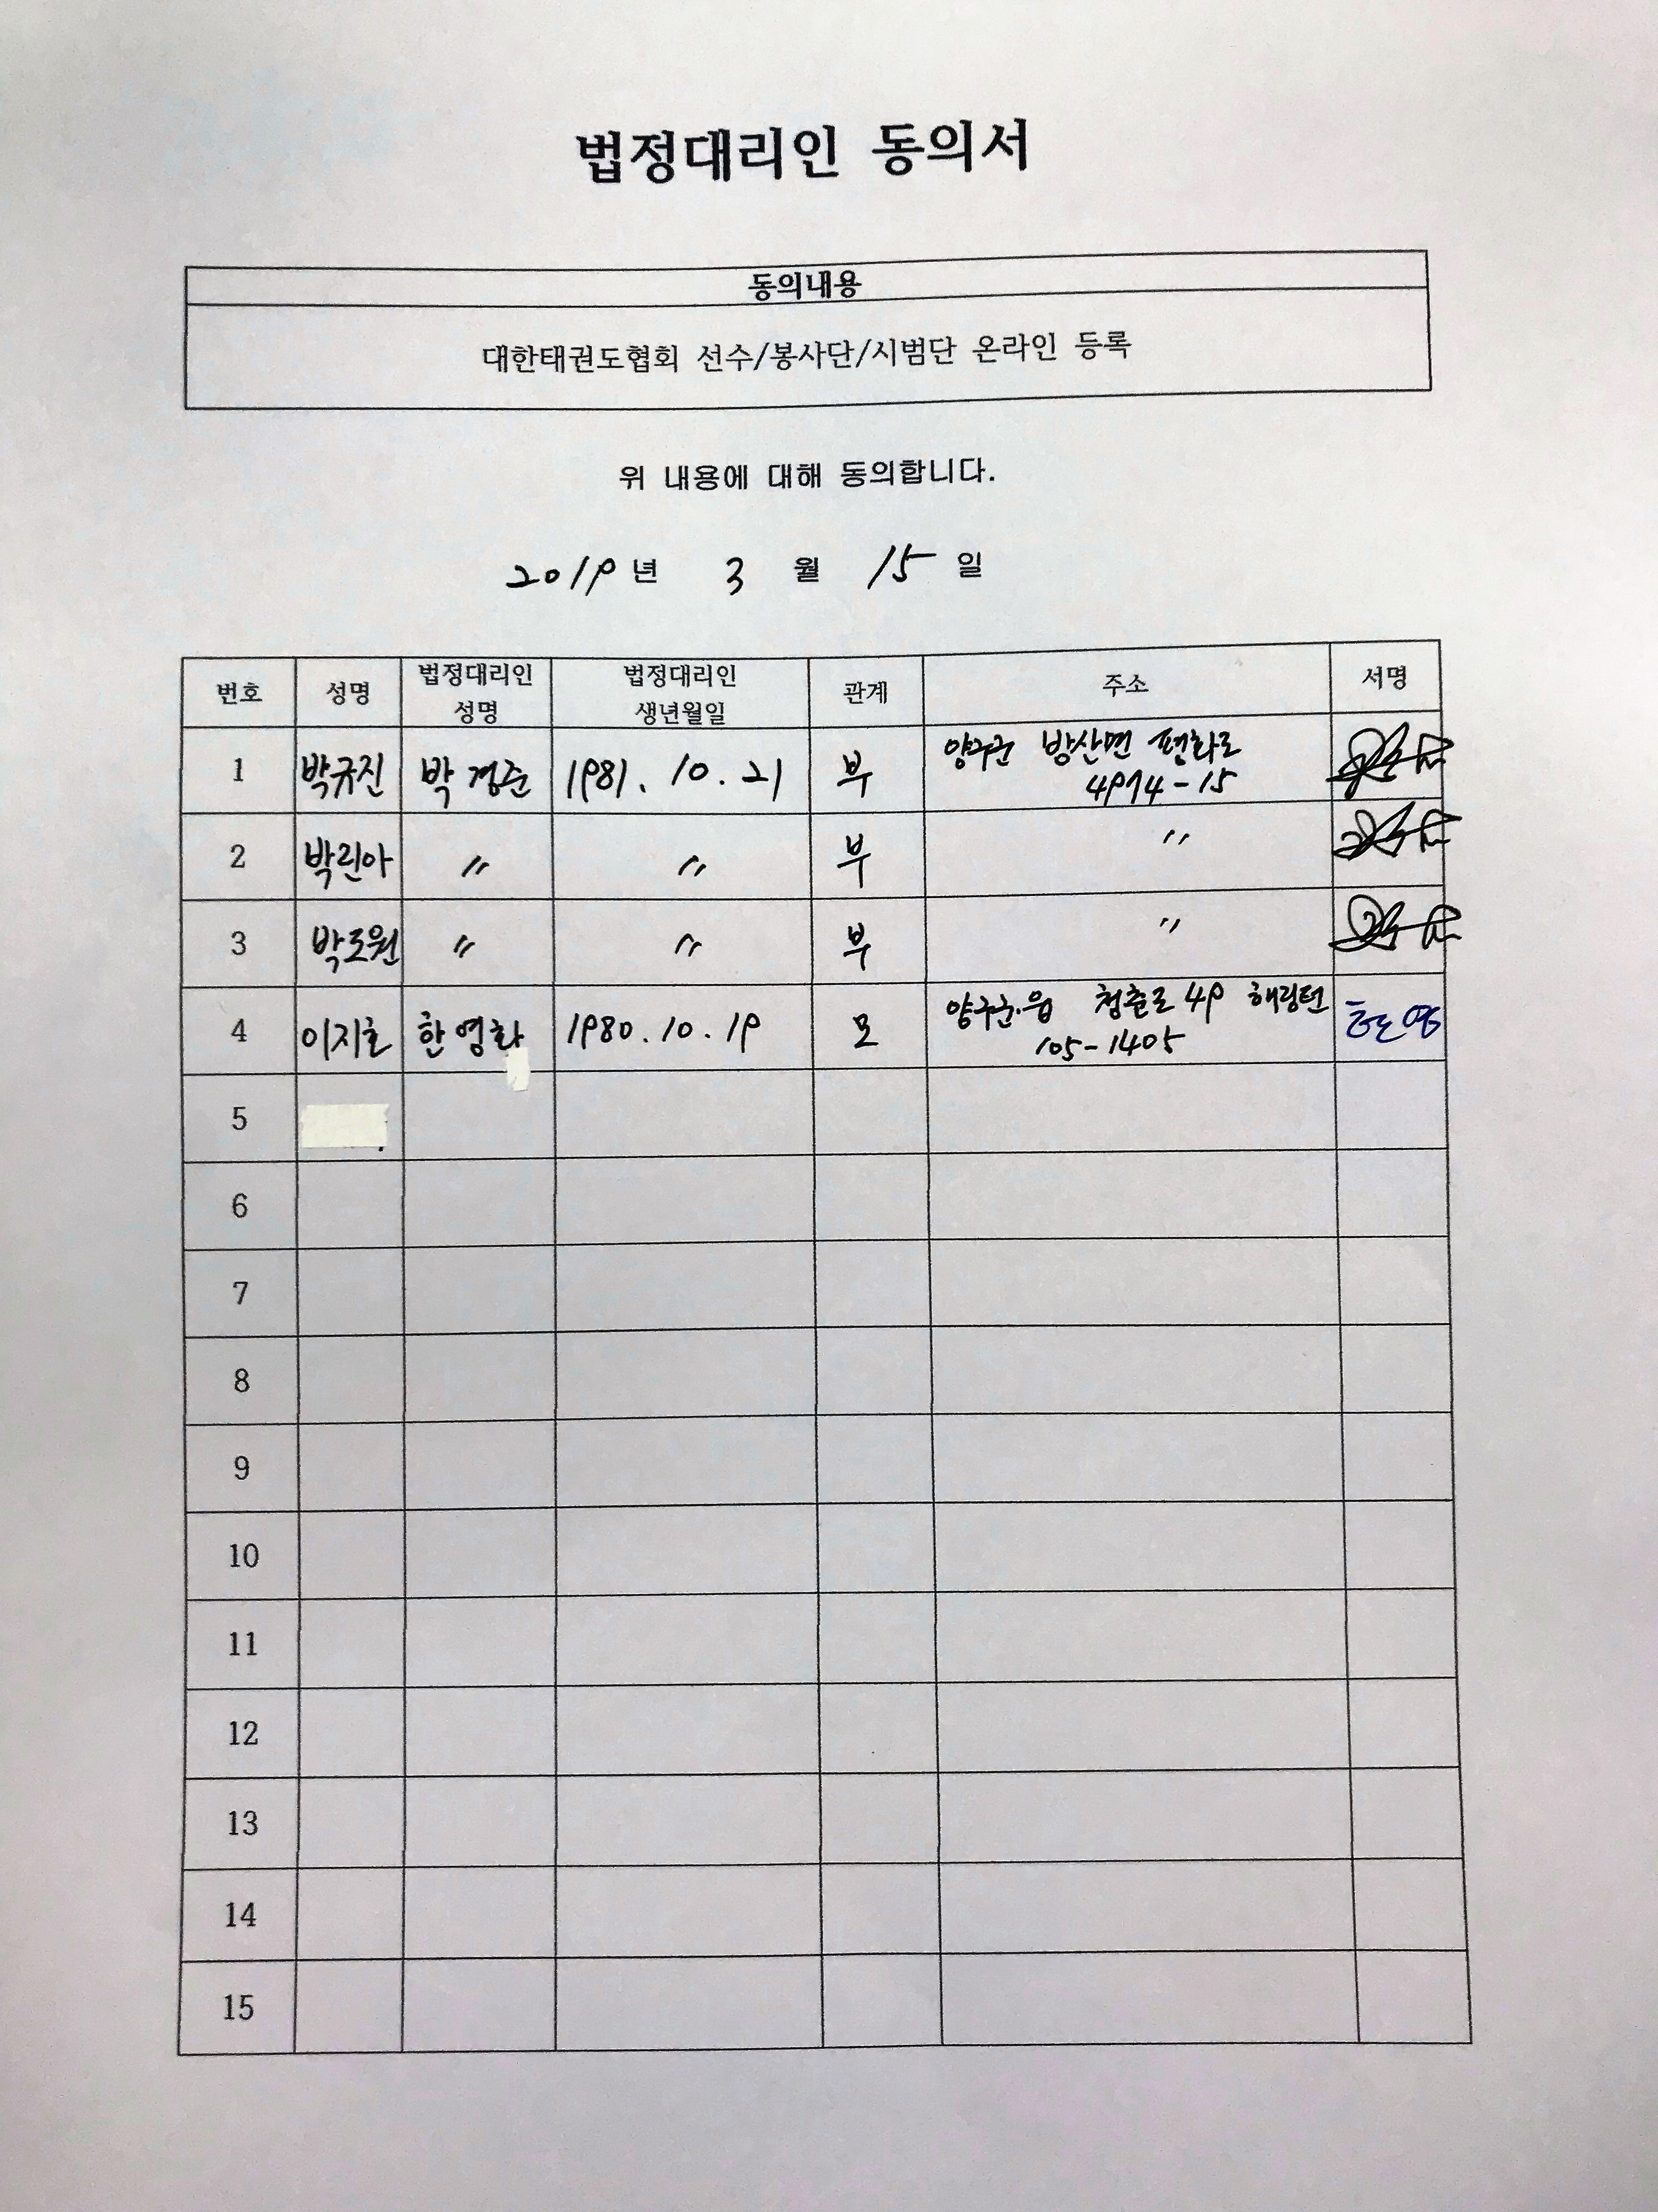 법정대리인 동의서
동의내용
대한태권도협회 선수/봉사단/시범단 온라인 등록
위 내용에 대해 동의합니다.
2019년 3 월 15 일
번호 성명 법정대리인 성명 법정대리인 생년월일 관계 주소 서명
1 박규진 박경준 1981. 10. 21 부 양구군 방산면 평화로
4974-15
2 박린아 〃 〃 부 〃
3 박도원 〃 〃 부 〃
4 이지호 한영화 1980. 10. 19 모 양구군.읍 청춘로 49 해링턴
105-1405
5
6
7
8
9
10
11
12
13
14
15